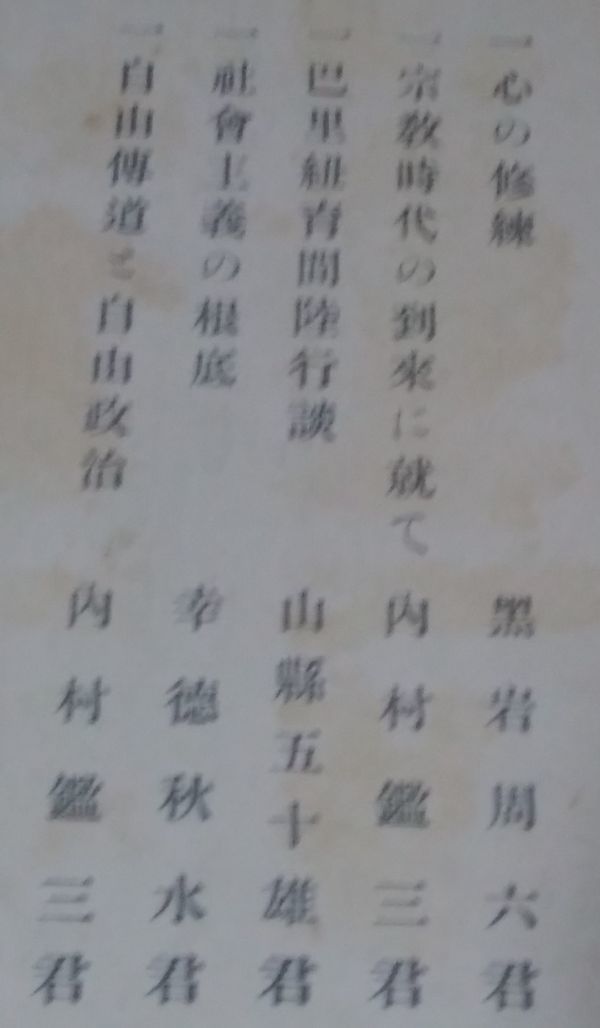 一心の修練 黒岩周六君
一宗教時代の到來に就て 内村鑑三君
一巴里紐育間陸行談 山縣五十雄君
一社會主義の根底 幸德秋水君
一自由傳道と自由政治 内村鑑三君